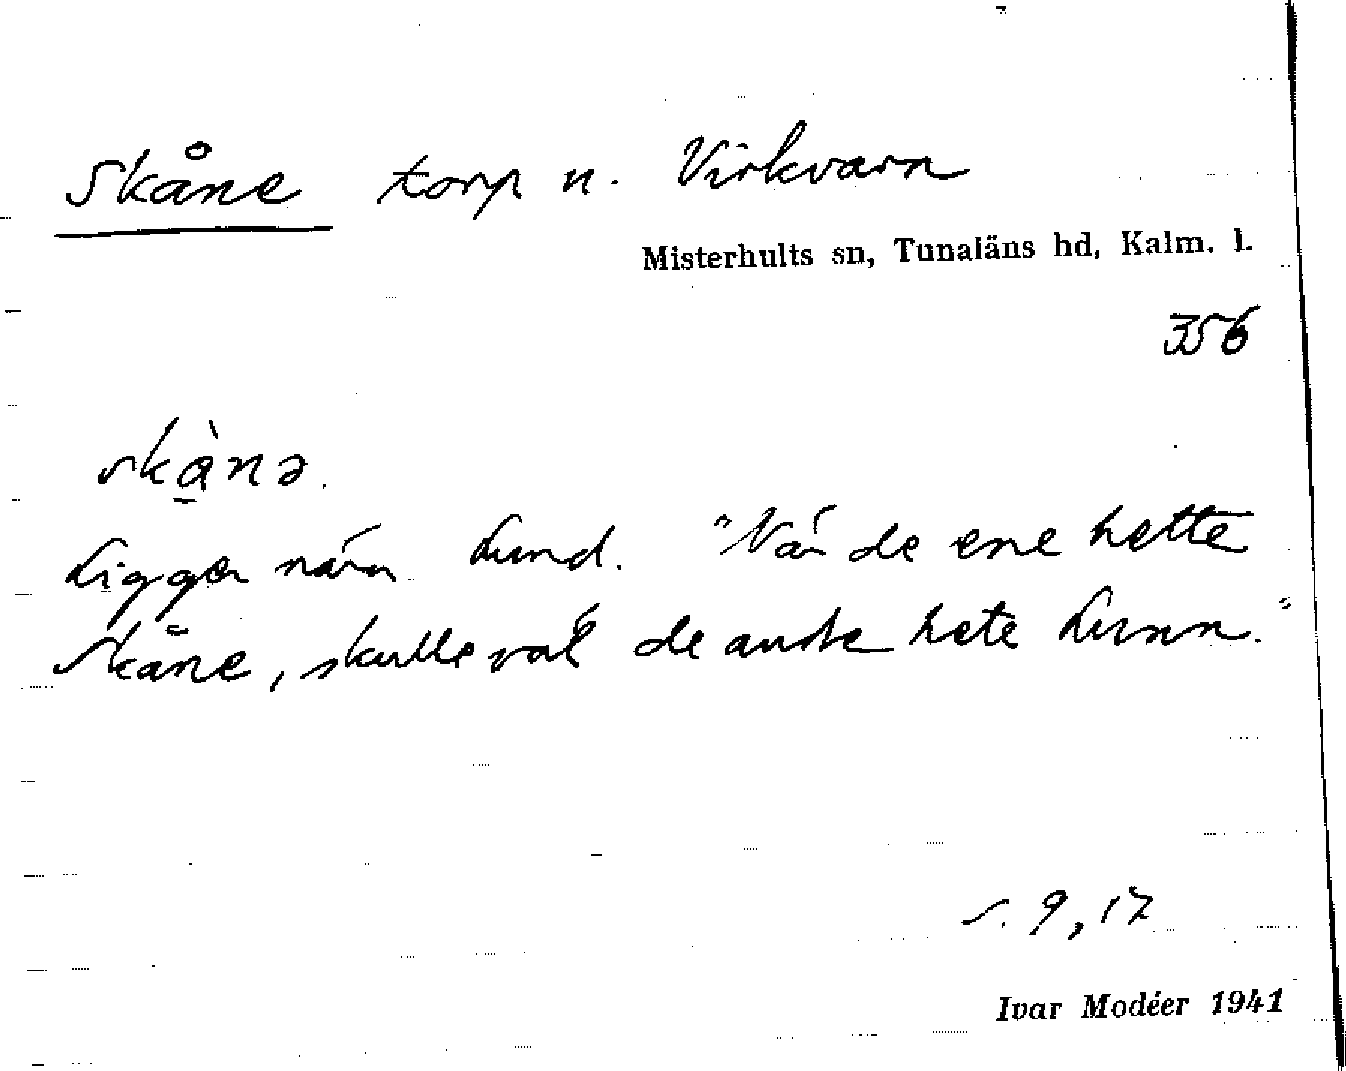 Skåne torp u. Virkvarn
Misterhults sn, Tunaläns hd, Kalm. l.
356
skὰ̱nə.
Ligger nära Lund. "När de ene hette
Skåne, skulle väl de andra hete Lunn."
s. 9, 17
Ivar Modéer 1941